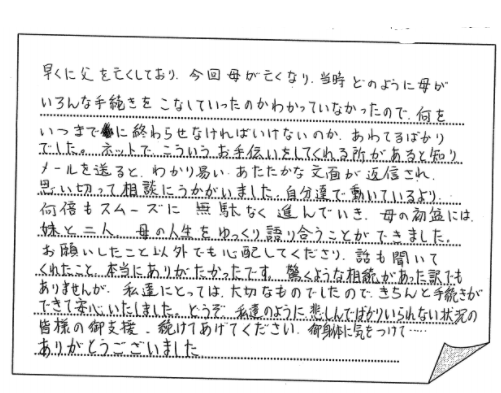 早くに父を亡くしており、今回母が亡くなり、当時どのように母が
いろんな手続きをこなしていったのかわかっていなかったので、何を
いつまでに終わらせなければいけないのか、あわてるばかり
でした。ネットで、こういうお手伝いをしてくれる所があると知り
メールを送ると、わかり易い、あたたかな文面が返信され、
思い切って相談にうかがいました。自分達で動いているより、
何倍もスムーズに無駄なく進んでいき、母の初盆には、
妹と二人、母の人生をゆっくり語り合うことができました。
お願いしたこと以外でも心配してくださり、話も聞いて
くれたこと、本当にありがたかったです。驚くような相続があった訳でも
ありませんが、私達にとっては、大切なものでしたので、きちんと手続きが
できて安心いたしました。どうぞ、私達のように悲しんでばかりいられない状況の
皆様の御支援、続けてあげてください。御身体に気をつけて……
ありがとうございました